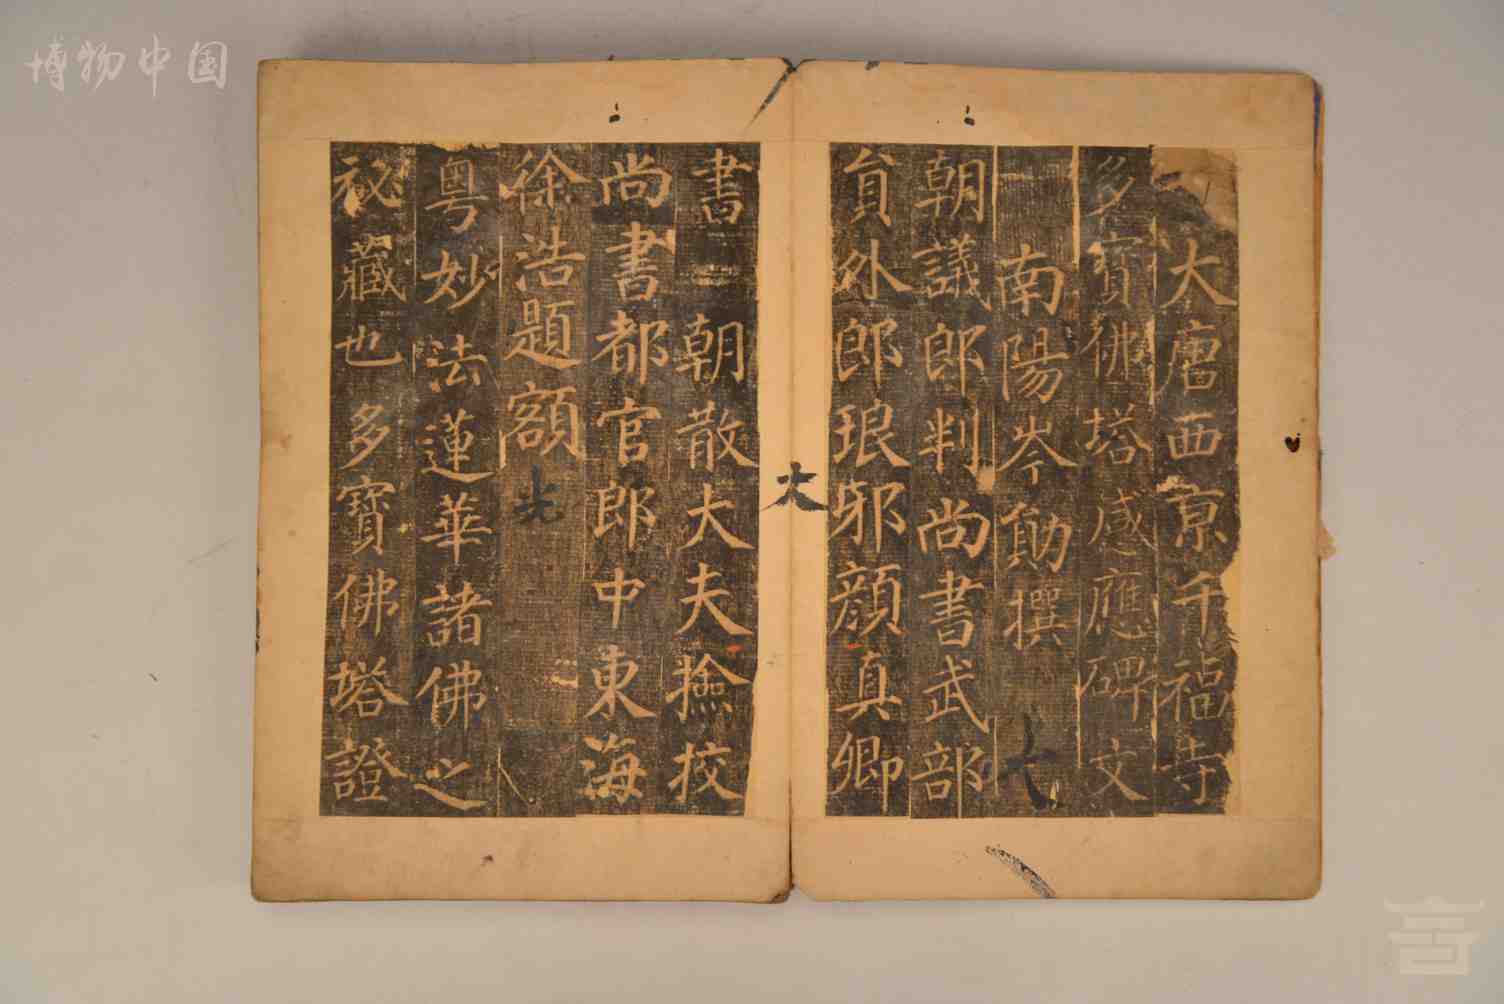 博物中国
大唐西京千福寺
多寶佛塔感應碑文
南陽岑勛撰
朝議郎判尚書武部
貟外郎琅邪顔真卿
書 朝散大夫撿挍
尚書都官郎中東海
徐浩題額
粵妙法蓮華諸佛之
祕藏也多寶佛塔證
大